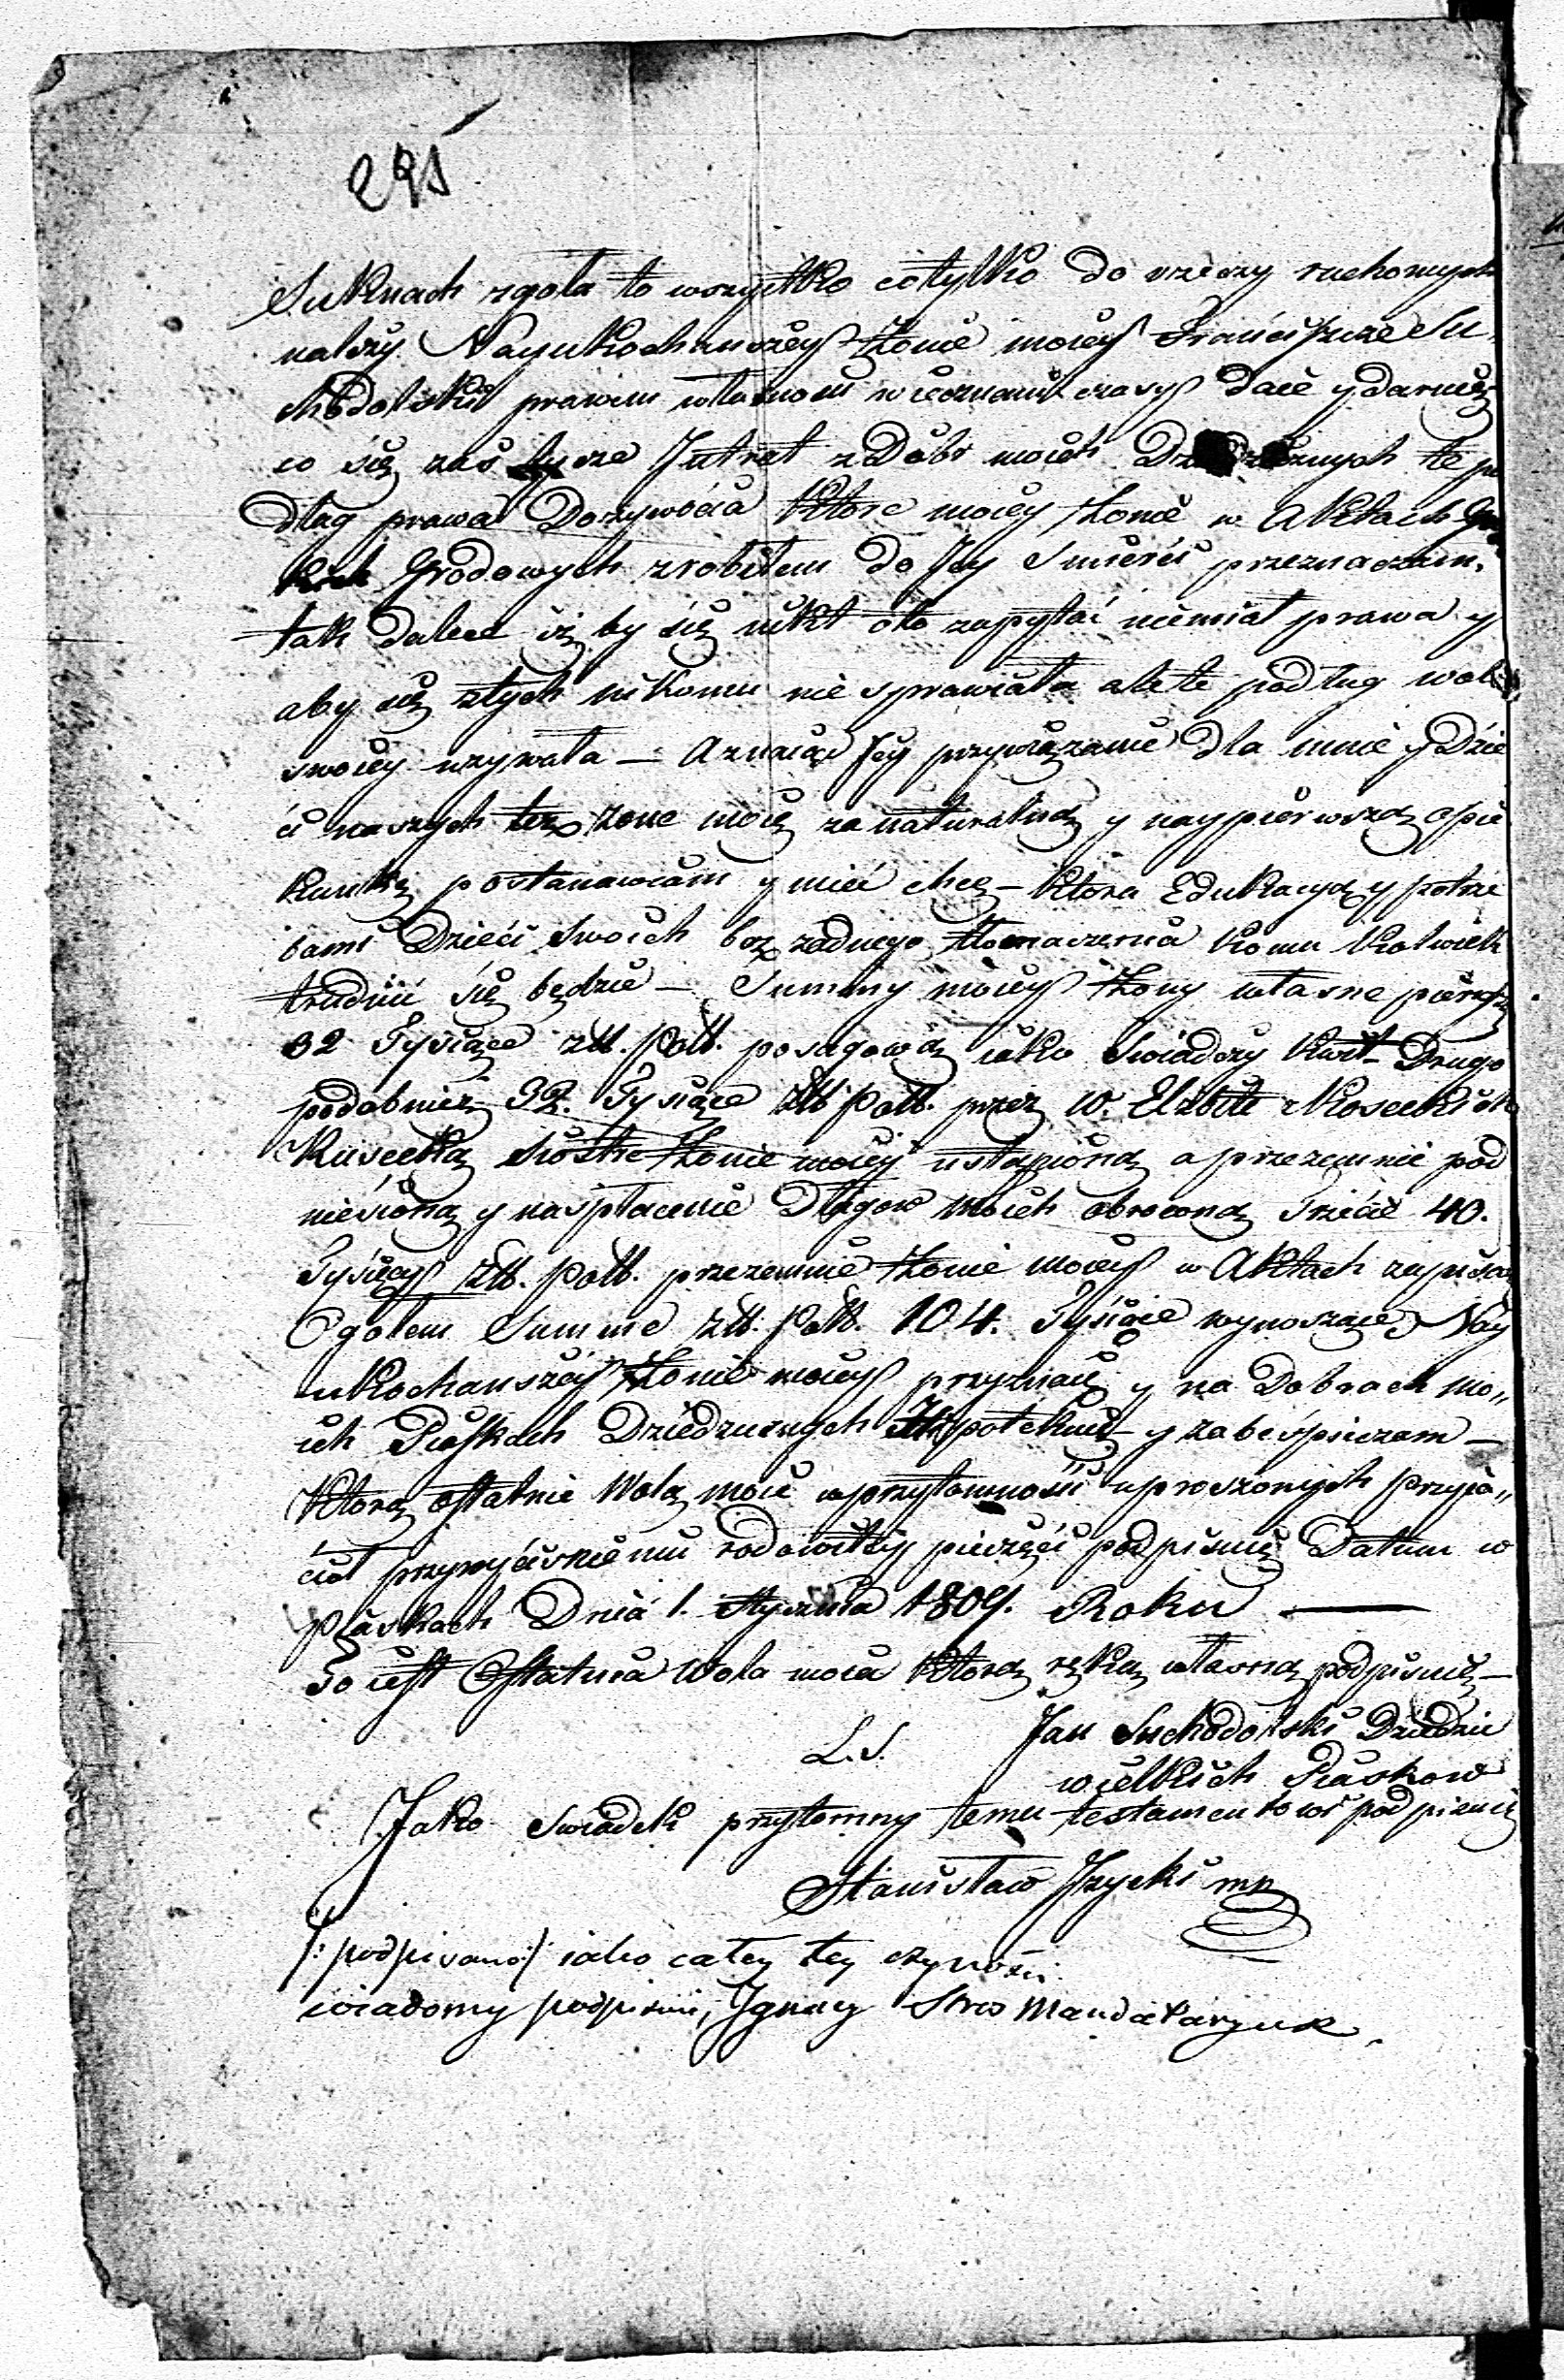 Suknach zgoła to wszystko co tylko do rzeczy ruchomych
nalezy Nayukochanszey Żonie moiey Franciszce Su
chodolskiey prawem własnem wiecznemi czasy daie y daruię
co się zaś tycze Jntrat z Dobr moich te po
dług prawa Dozywocia ktore moiey Żonie w Aktach
Grodowych zrobiłem do Jey Smierci przeznaczam,
tak dalece iż by się nikt oto zapytać niemiał prawa y
aby się ztych nikomu nie sprawiała ale te podług woli
swoiey uzywała — A znaiąc Jey przywiązanie dla mnie y Dzie
ci naszych też żone moię za naturalną y naypierwszą opie
kunkę postanawiam y mieć chcę — ktora Edukacyą y potrze
bami Dzieci swoich bez zadnego tłomaczenia komu kolwiek
trudnić się będzie — Summy moiey Żony własne pierwszą
32 Tysiące złł. poll. posagową iako swiadczy kwit — Drugą
podobnież 32. Tysiące złł poll. przez W. Elzbite z Koseckich
Kusecką siostre Żonie moiey ustąpioną a przezemnie pod
niesioną y naspłacenie Długow moich obroconą Trzecie 40.
Tysięcy złł. poll. przezemnie Żonie moiey w Aktach zapisaną
Ogołem Summe złł. poll. 104. Tysiące wynoszące Nay
ukochanszey Żonie moiey przyznaię y na Dobrach mo„
ich Piaskach Dziedzicznych Hypotekuię y zabespieczam —
Ktorą ostatnie Wolą moie wprzytomności uproszonych przyia„
ciół przywyciśnieniu rodowitey pieczęci podpisuię Datum w
Piaskach Dnia 1. Stycznia 1809. Roku —
To iest Ostatnia Wola moia ktorą ręką własną podpisuię —
L.S. Jan Suchodolski Dziedzic
wielkich Piaskow
Jako swiadek przytomny temu testamentowi podpisuię
Stanisław Jzycki mp
/: podpisano:/ iako całey tey czynności
wiadomy podpisuię, Jgnacy Mandataryusz.